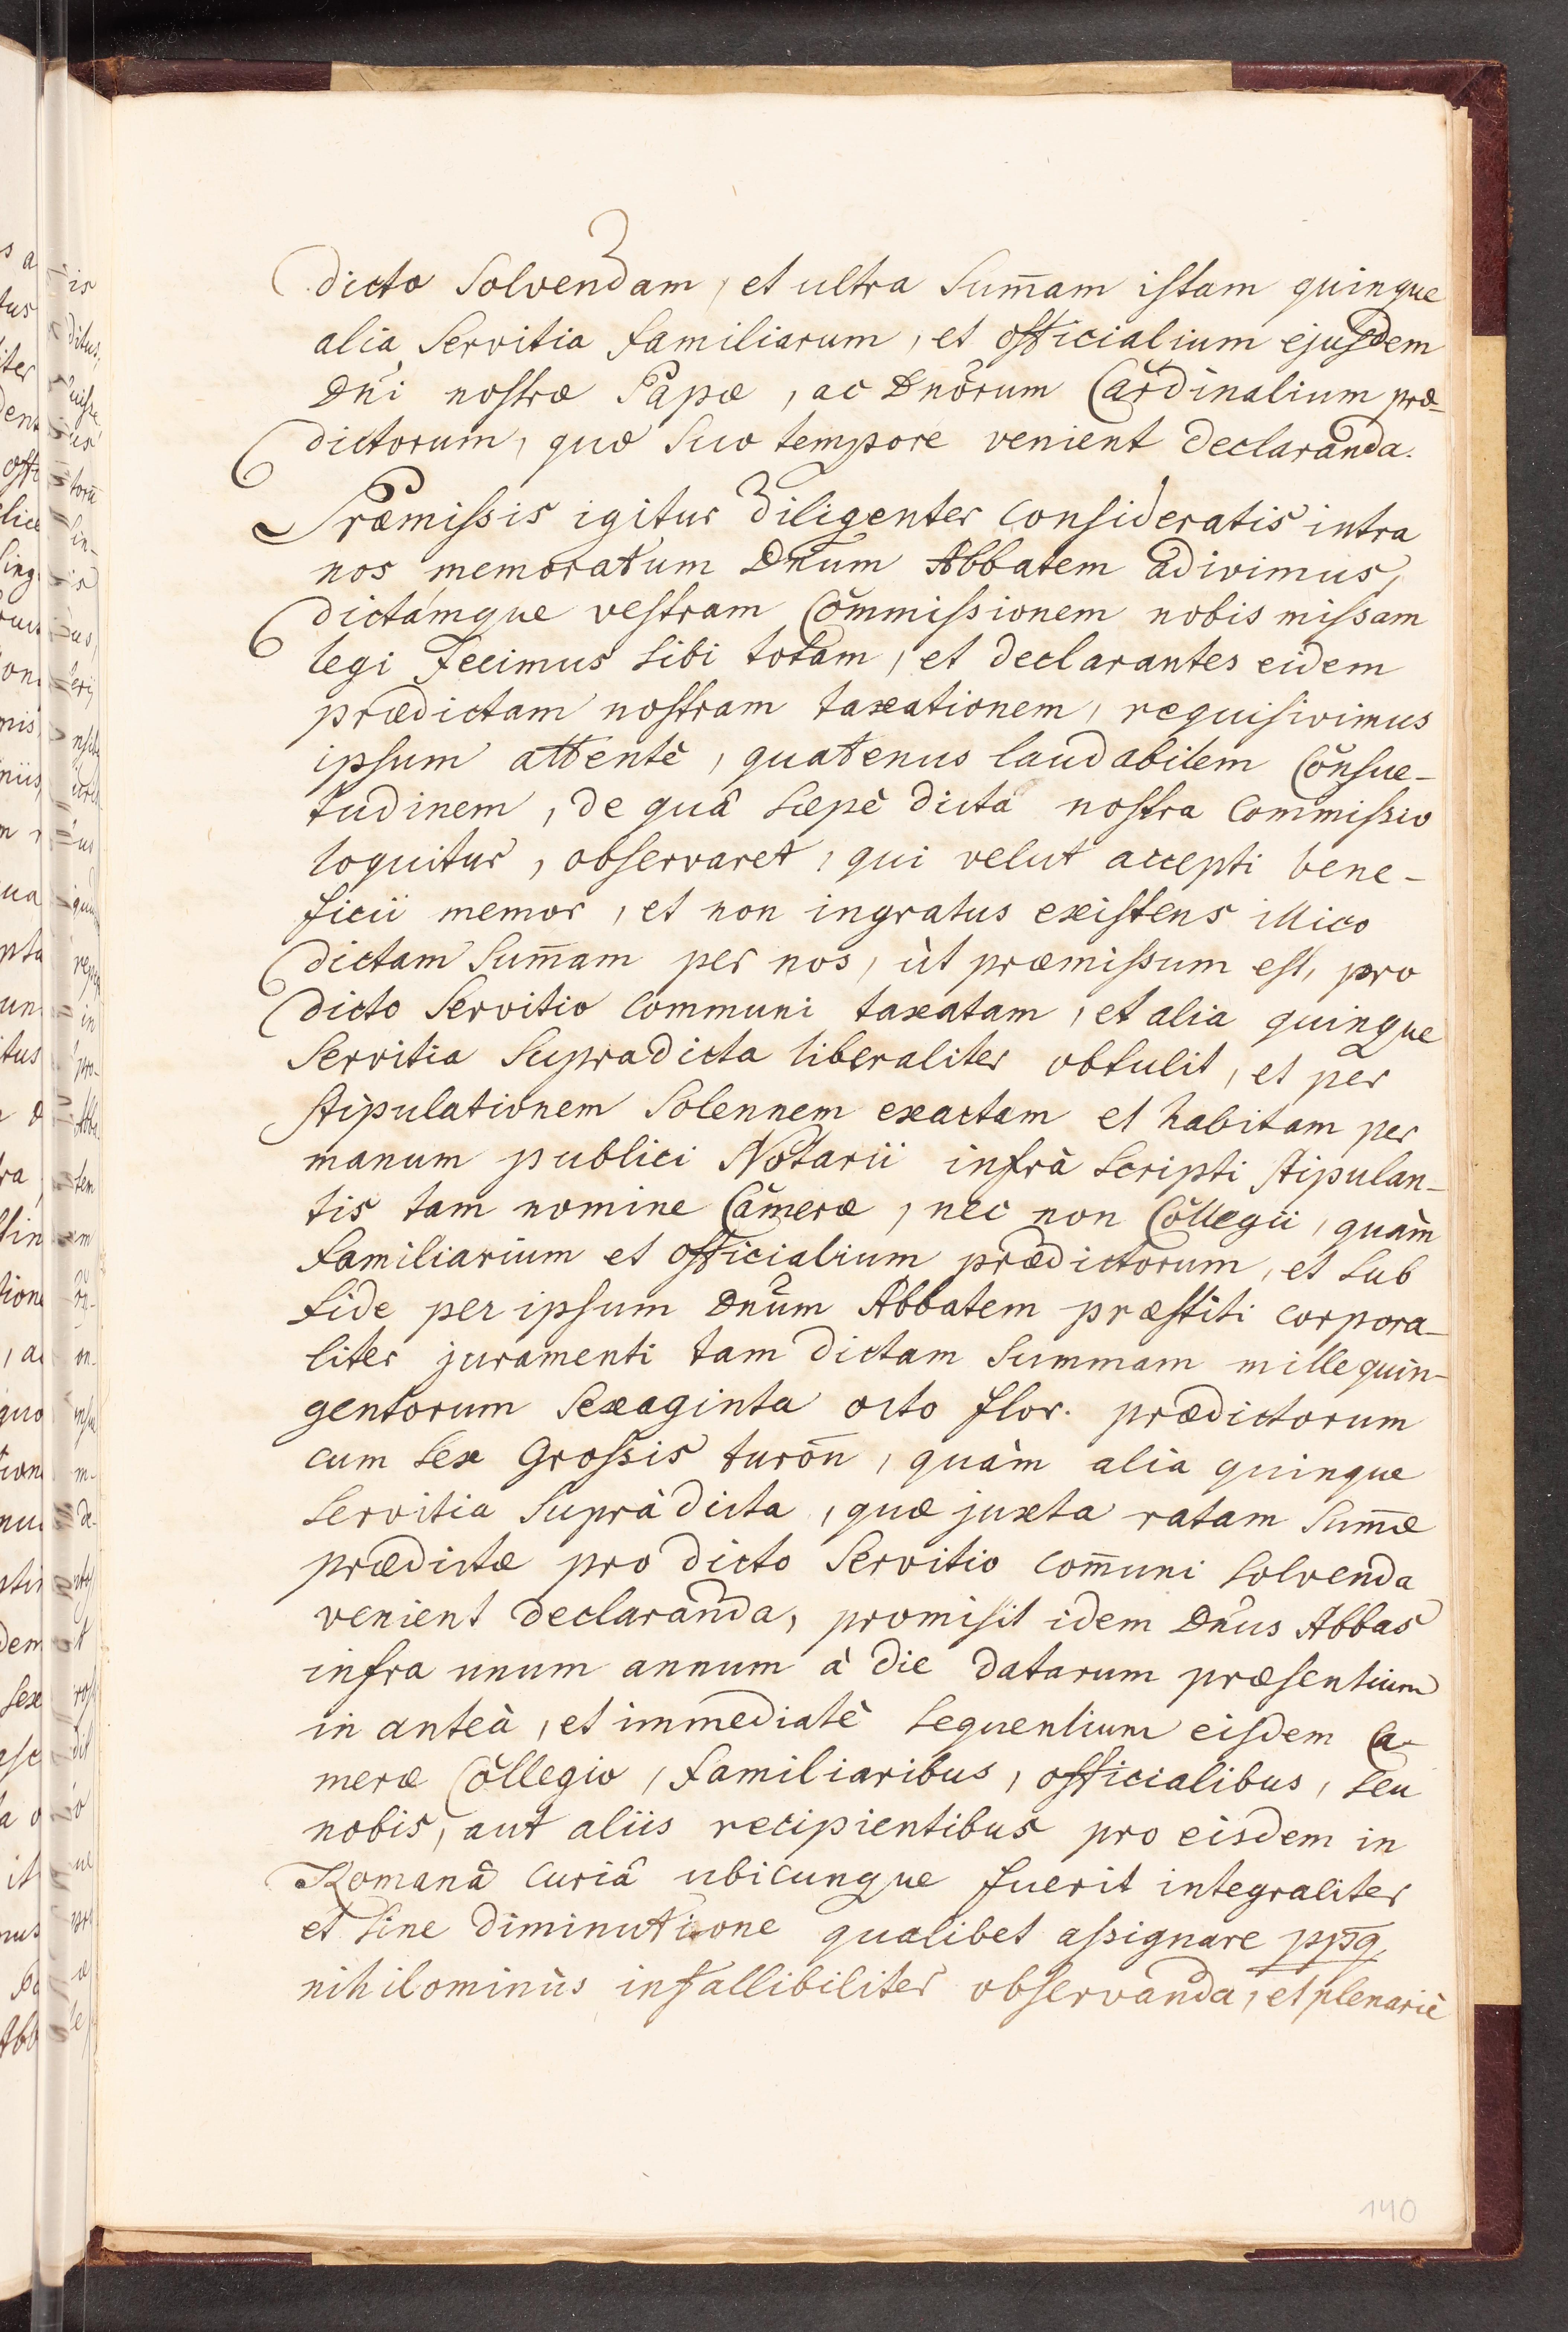 dicto Solvendam, et ultra Sum̄am istam quinque
alia Servitia familiarum, et officialium ejusdem
Dn̄i nostræ Papæ, ac Dn̄orum Cardinalium præ-
dictorum, quæ Suo tempore venient declaranda.
Præmissis igitur diligenter consideratis intra
nos memoratum Dn̄um Abbatem adivimus,
dictámque vestram Commissionem nobis missam
legi Fecimus sibi totam, et declarantes eidem
prædictam nostram taxationem, requisivimus
ipsum attentè, quatenus laudabilem Consue-
tudinem, de quâ sæpè dicta nostra Commissio
loquitur, observaret, qui velut accepti bene-
ficii memor, et non ingratus existens illico
dictam Sum̄am per nos, ùt præmissum est, pro
dicto Servitio communi taxatam, et alia quinque
Servitia Supradicta liberaliter obtulit, et per
stipulationem Solennem exactam et habitam per
manum publici Notarii infrà scripti stipulan-
tis tam nomine Cameræ, nec non Collegii, quàm
familiarium et officialium prædictorum, et sub
fide per ipsum Dn̄um Abbatem præstiti corpora-
liter juramenti tam dictam Summam mille quin-
gentorum Sexaginta octo flor. prædictorum
cum sex Grossis turon̄, quàm alia quinque
Servitia Suprà dicta, quæ juxta ratam Sum̄æ
prædictæ pro dicto Servitio com̄uni solvenda
venient declaranda, promisit idem Dn̄us Abbas
infra unum annum à die datarum præsentium
in anteà, et immediatè sequentium eisdem Ca-
meræ Collegio, familiaribus, officialibus, seu
nobis, aut aliis recipientibus pro eisdem in
Romanâ Curiâ ubicunque fuerit integraliter
et sine diminutione qualibet assignare
nihilominùs infallibiliter observanda, et plenariè
140